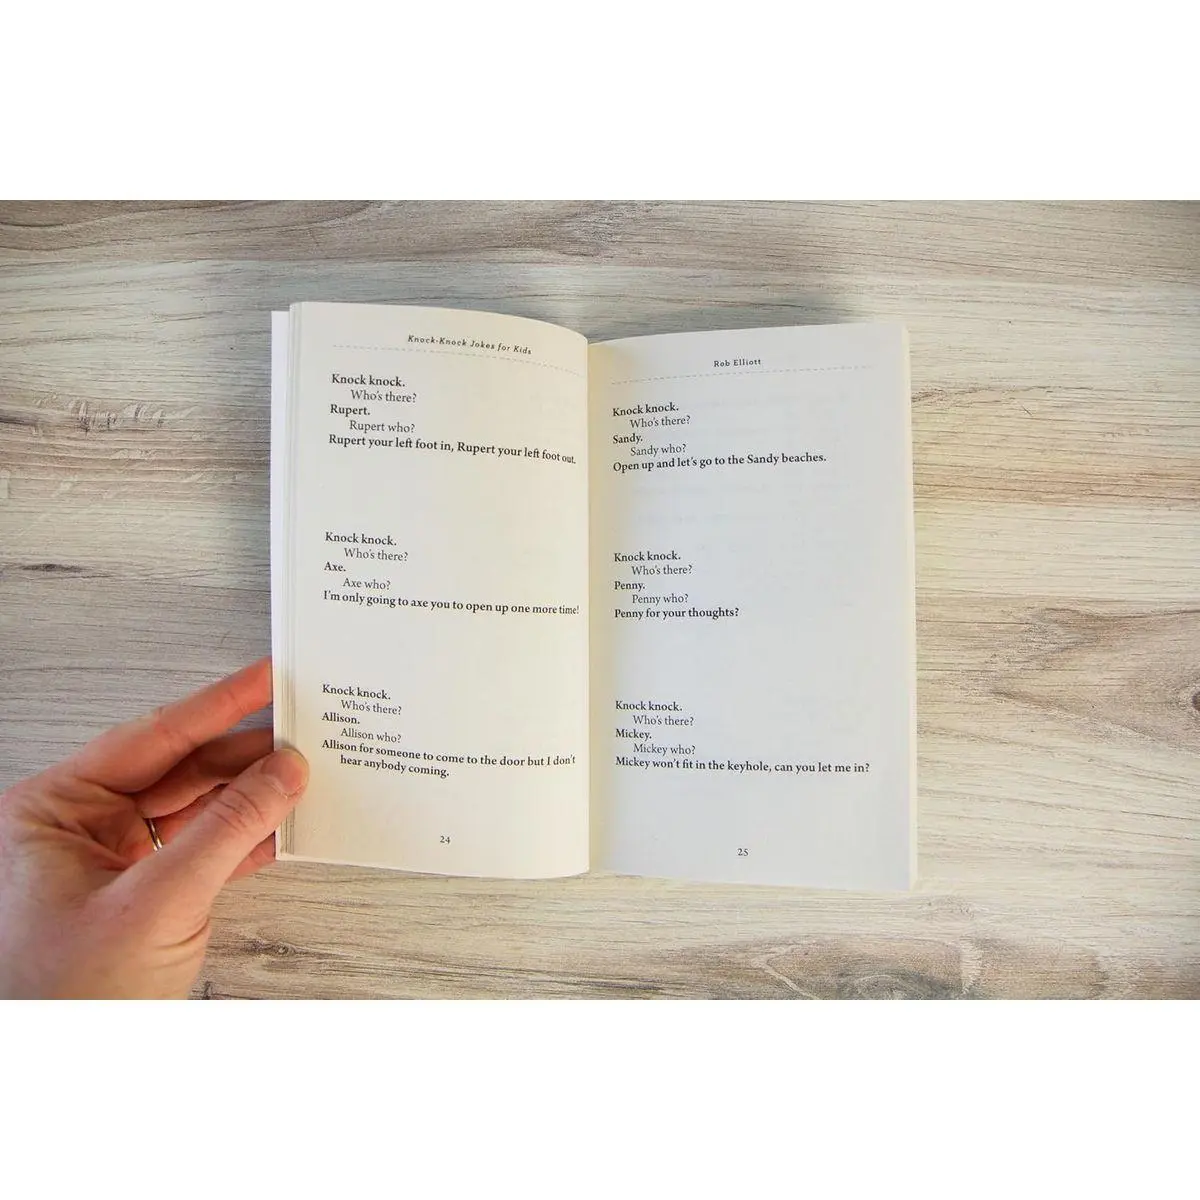 Knock-Knock Jokes for Kids
Knock knock.
Who's there?
Rupert.
Rupert who?
Rupert your left foot in, Rupert your left foot out.
Knock knock.
Who's there?
Axe.
Axe who?
I'm only going to axe you to open up one more time!
Knock knock.
Who's there?
Allison.
Allison who?
Allison for someone to come to the door but I don't
hear anybody coming.
24
Rob Elliott
Knock knock.
Who's there?
Sandy.
Sandy who?
Open up and let's go to the Sandy beaches.
Knock knock.
Who's there?
Penny.
Penny who?
Penny for your thoughts?
Knock knock.
Who's there?
Mickey.
Mickey who?
Mickey won't fit in the keyhole, can you let me in?
25